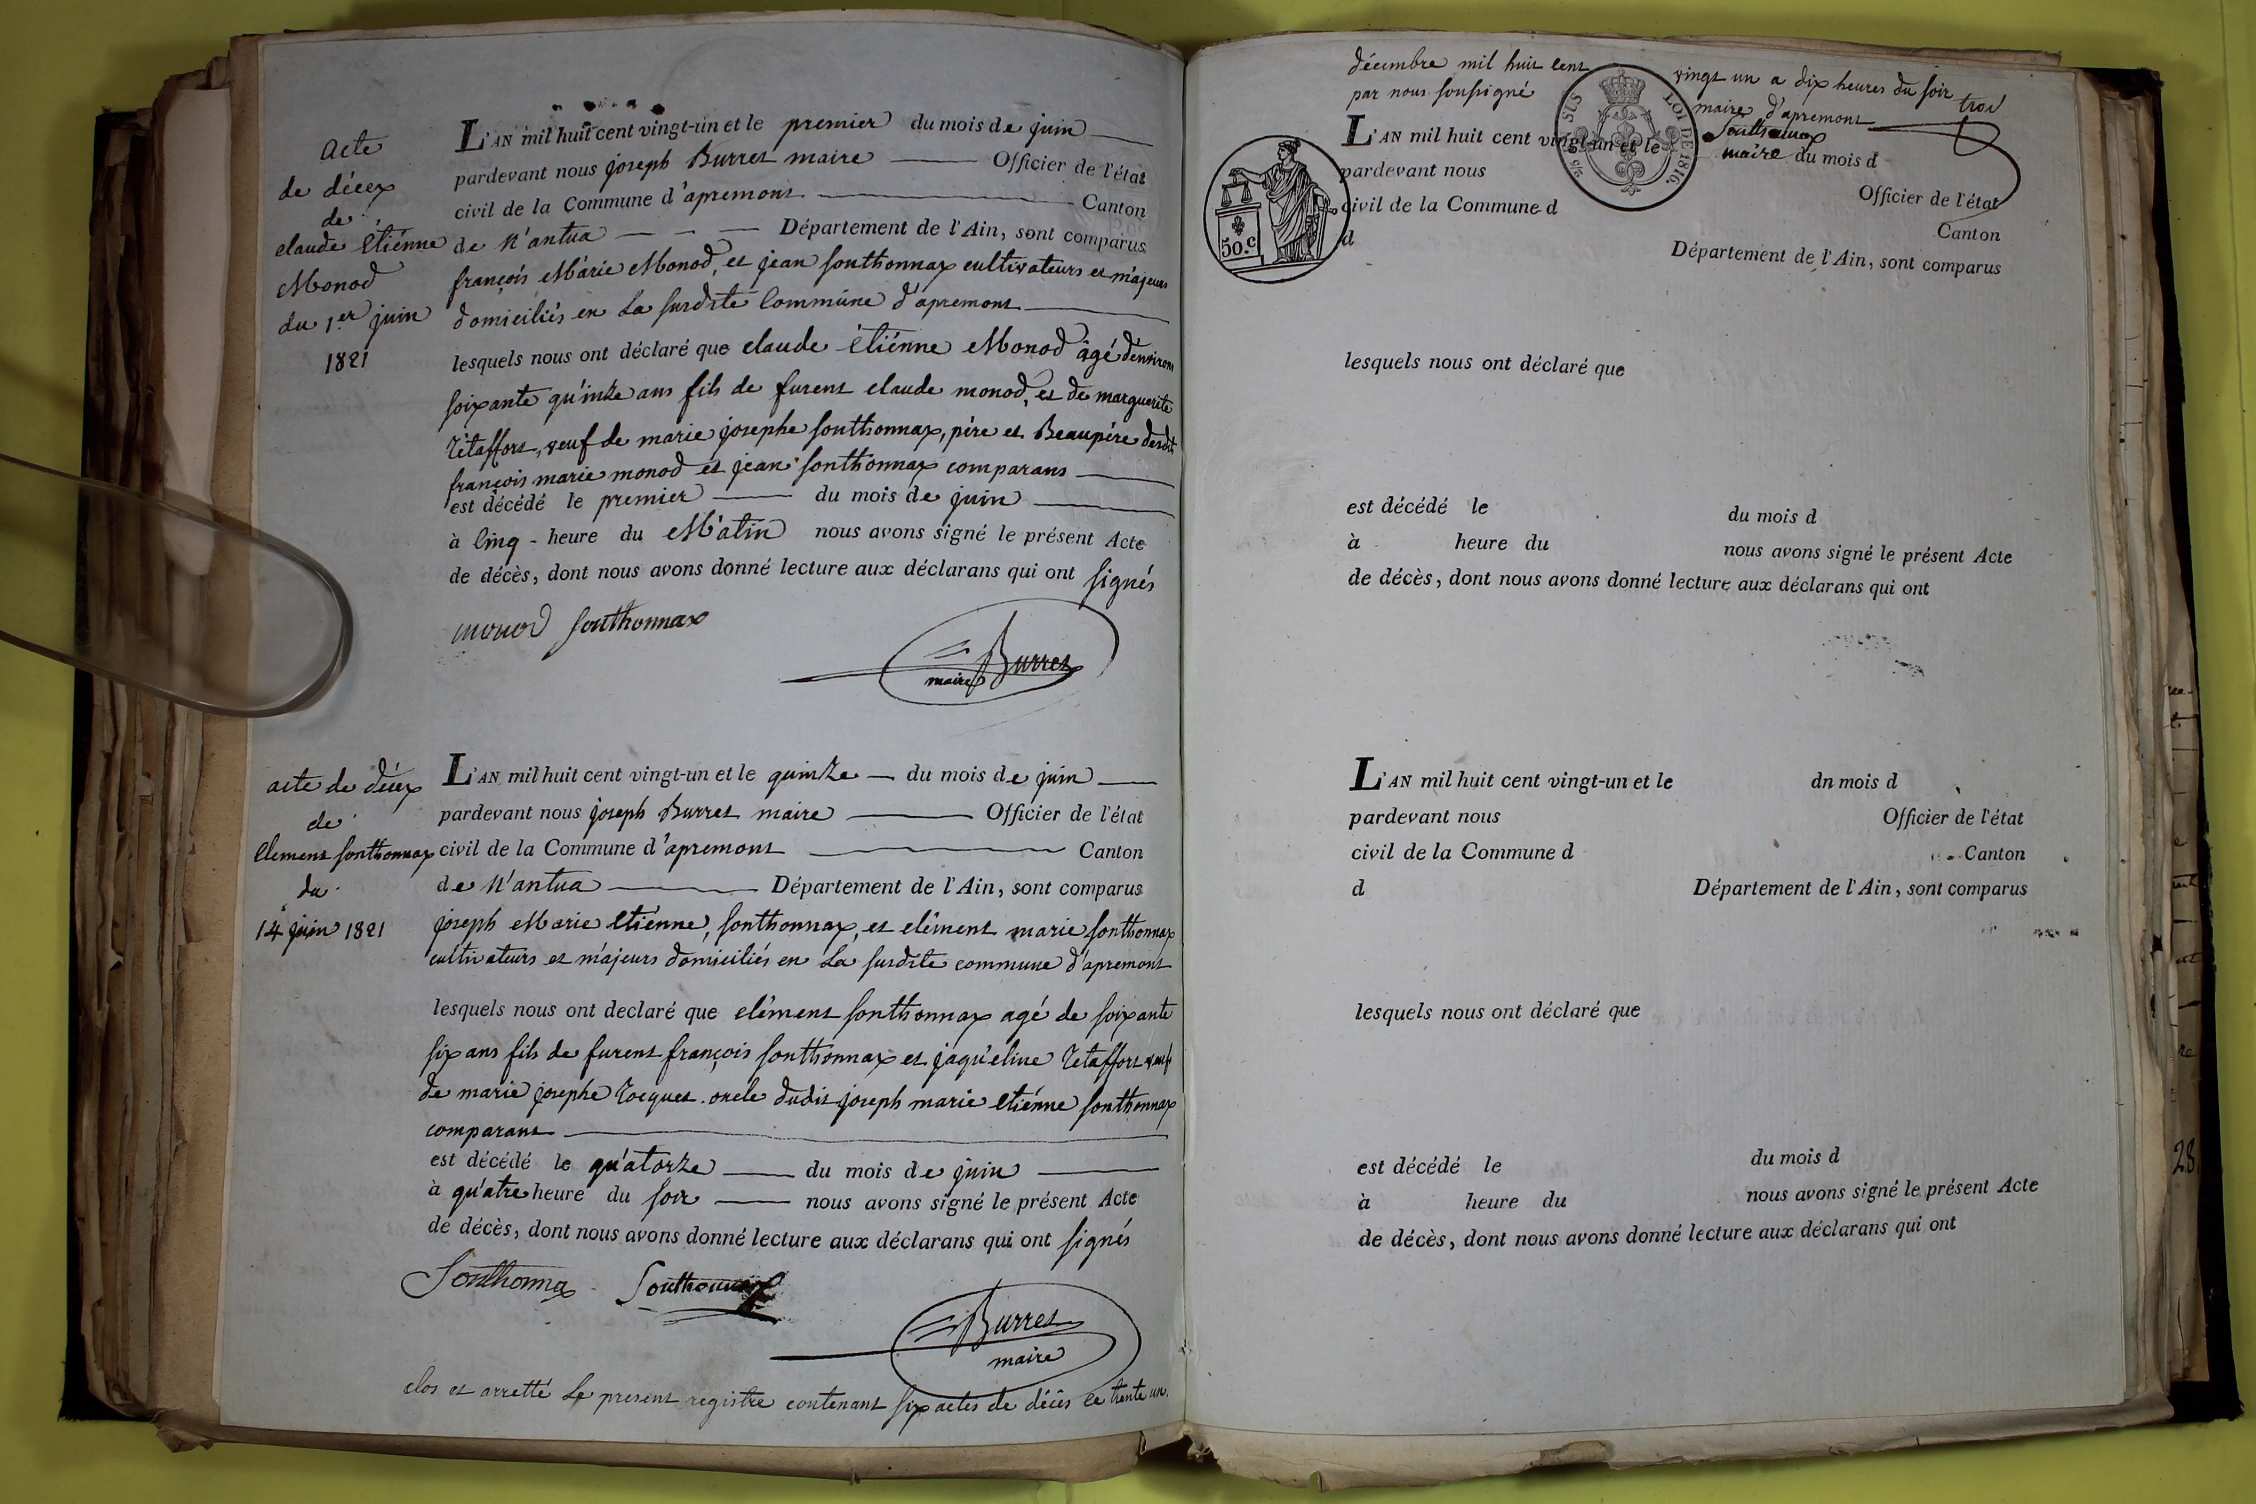 Acte
de décex
de
claude Etiénne
Monod
du 1er juin
1821
L'AN mil huit cent vingt-un et le premier du mois de juin
pardevant nous joseph Burret maire Officier de l'état
civil de la Commune d'apremont Canton
de N'antua Département de l'Ain, sont comparus
françois Marie Monod, et jean sonthonnax cultivateurs et majeurs
domiciliés en La susdite Commune d'apremont
lesquels nous ont déclaré que claude Etiénne Monod âgé d'environ
soixante qu'inze ans fils de furent claude monod, et de marguerite
Tétaffort, veuf de marie josephe sonthonnax, père et Beaupère desdit
françois marie monod et jean sonthonnax comparans
est décédé le premier du mois de juin
à Cinq heure du Matin nous avons signé le présent Acte
de décès, dont nous avons donné lecture aux déclarans qui ont signés
monod sonthonnax
Burret
maire
acte de décex
de
Clement sonthonnax
du
14 juin 1821
L'AN mil huit cent vingt-un et le quinze du mois de juin
pardevant nous joseph Burret maire Officier de l'état
civil de la Commune d'apremont Canton
de N'antua Département de l'Ain, sont comparus
joseph Marie Etiénne, sonthonnax, et clément marie sonthonnax
cultivateurs et majeurs domiciliés en La susdite commune d'apremont
lesquels nous ont declaré que clément sonthonnax agé de soixante
six ans fils de furent françois sonthonnax et jaqu'eline Tetaffort veuf
de marie josephe Tocquet. oncle dudit joseph marie etiénne sonthonnax
comparant
est décédé le qu'atorze du mois de juin
à qu'atre heure du soir nous avons signé le présent Acte
de décès, dont nous avons donné lecture aux déclarans qui ont signés
Sonthonnax Sonthonnax
Burret
maire
clos et arretté Le present registre contenant six actes de décès ce trente un
décembre mil huit cent vingt un a dix heures du soir
par nous soussigné maire d'apremont
Sonthonnax
maire
SIS
LOI DE 1816.
50.c
L'AN mil huit cent vingt-un et le du mois d
pardevant nous Officier de l'état
civil de la Commune d Canton
d Département de l'Ain, sont comparus
lesquels nous ont déclaré que
est décédé le du mois d
à heure du nous avons signé le présent Acte
de décès, dont nous avons donné lecture aux déclarans qui ont
L'AN mil huit cent vingt-un et le dn mois d
pardevant nous Officier de l'état
civil de la Commune d Canton
d Département de l'Ain, sont comparus
lesquels nous ont déclaré que
est décédé le du mois d
à heure du nous avons signé le présent Acte
de décès, dont nous avons donné lecture aux déclarans qui ont
28